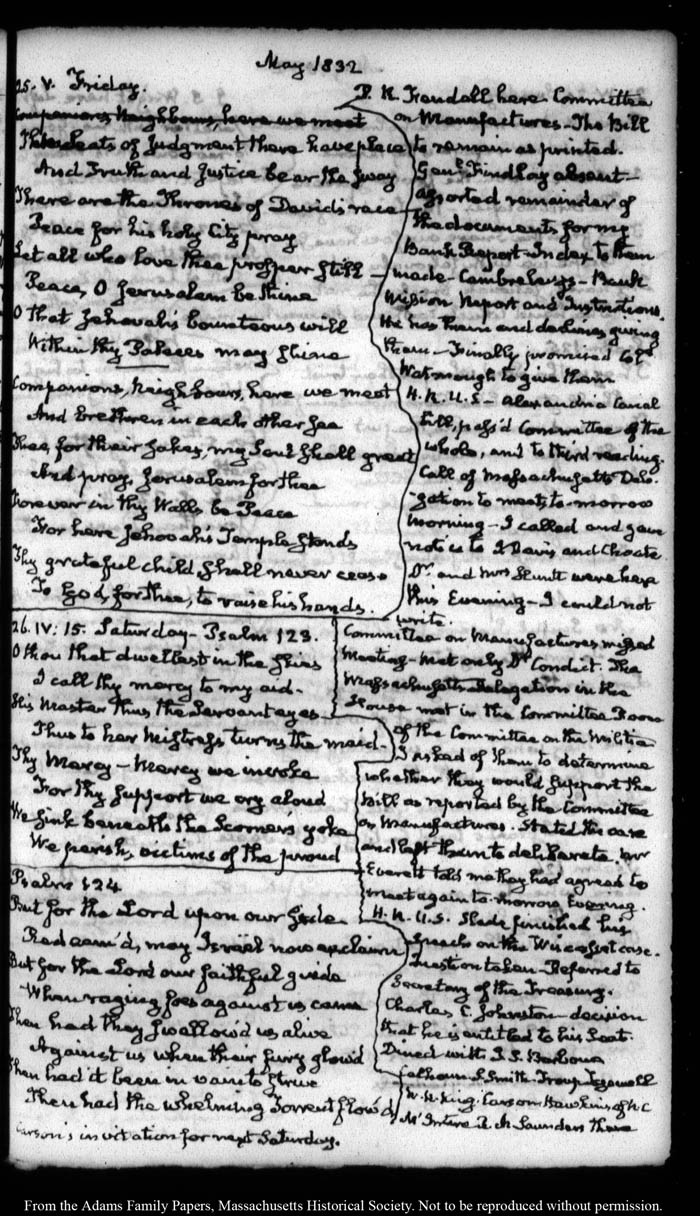 May 1832
25. V. Friday.
Companions, Neighbours, here we meet
The Seats of Judgment there have place
And Truth and Justice bear the sway
There are the Thrones of David's race
Peace for his holy City pray
Let all who love thee prosper still
Peace, O Jerusalem be thine
O That Jehovah's bounteous will
Within thy Palaces may shine
Companions, Neighbours, here we meet
And brethren in each other see
Thee, for their sakes, my Soul shall greet
And pray, Jerusalem for thee
Forever in thy Walls be Peace
For here Jehovah's Temple stands
Thy grateful child shall never cease
To God, for thee, to raise his hands.
P. R. Fendall here. Committee
on Manufactures—The Bill
to remain as printed.
Genl. Findlay absent—
assorted remainder of
the documents for my
Bank Report—Index to them
made—Cambreleng's—Bank
Mission Report and Instructions.
He has them and declines giving
them—Finally promised to
Watmough to give them
H.R.U.S—Alexandria Canal
bill, pass'd Committee of the
whole, and to third reading.
Call of Massachusetts Dele-
gation to meet to-morrow
morning—I called and gave
notice to J Davis and Choate
Dr. and Mrs Hunt were here
this Evening—I could not
write.
26. IV: 15. Saturday—Psalm 123.
O thou that dwellest in the skies
I call thy mercy to my aid—
His Master thus the Servant eyes
Thus to her Mistress turns the maid—
Thy Mercy—Mercy we invoke
For thy support we cry aloud
We sink beneath the Scorner's yoke
We perish, victims of the proud
Committee on Manufactures missed
Meeting—Met only Dr Condict. The
Massachusetts Delegation in the
House met in the Committee Room
of the Committee on the Militia
I asked of them to determine
whether they would support the
bill as reported by the Committee
on Manufactures. Stated the case
and left them to deliberate. Mr
Everett told me they had agreed to
meet again to-morrow Evening.
H.R.U.S. Slade finished his
speech on the Wiscasset case.
Question taken—Referred to
Secretary of the Treasury.
Charles C. Johnston—decision
that he is entitled to his Seat.
Dined with J. S. Barbour
Calhoun S Smith Troup Tazewell
W. R. King Carson Hawkins of N C
McIntire R. M Saunders there
Psalm 124
But for the Lord upon our side
Redeem'd, may Israel now exclaim
But for the Lord our faithful guide
When raging foes against us came
Then had they swallow'd us alive
Against us when their fury glow'd
Then had it been in vain to strive
Then had the whelming Torrent flow'd
Carson's invitation for next Saturday.
From the Adams Family Papers, Massachusetts Historical Society. Not to be reproduced without permission.